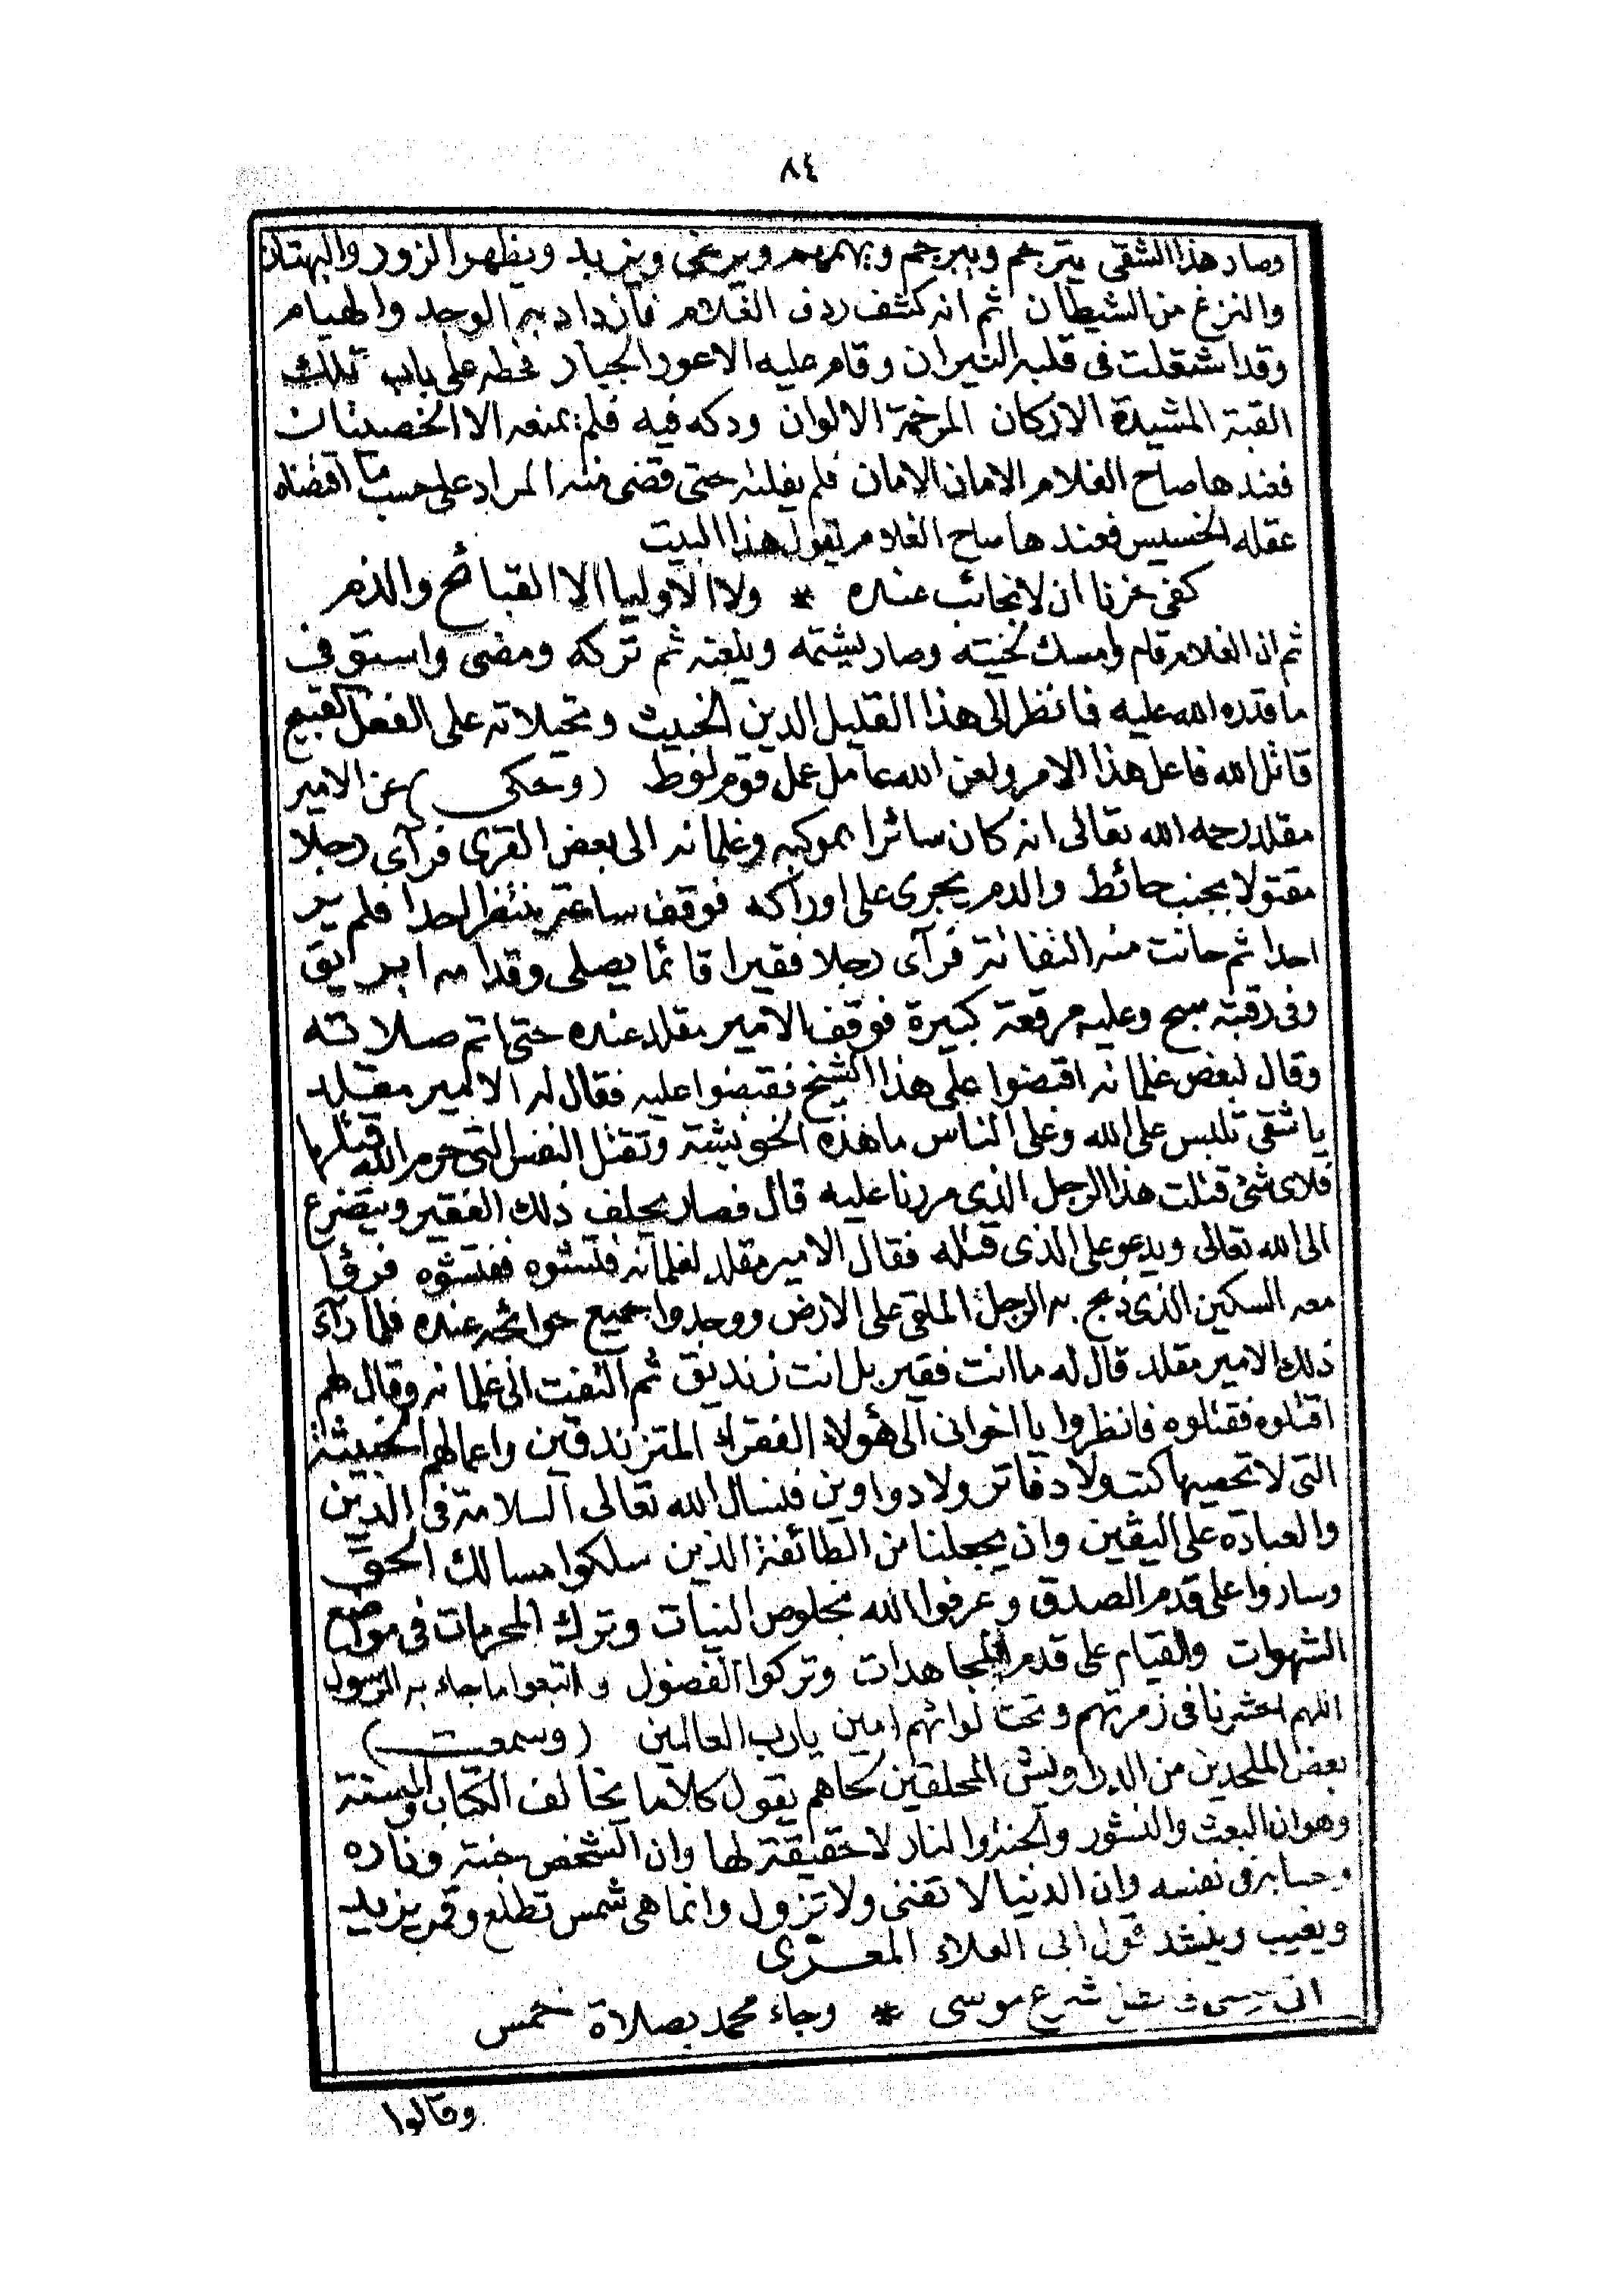 ٨٤
وصار هذا الشقى يترجم ويبرجم ويهمهم ويرغى ويزبد ويظهر الزور والبهتان
والنزغ من الشيطان ثم انه كشف ردف الغلام فازداد به الوجد والهيام
وقد اشتعلت فى قلبه النيران وقام عليه الاعور الجبار فحطه على باب تلك
القبة المشيدة الاركان المرخمة الالوان ودكه فيه فلم يمنعه الا الخصيتان
فعندها صاح الغلام الامان الامان فلم يفلته حتى قضى منه المراد على حسب ما اقتضاه
عقله الخسيس فعندها صاح الغلام يقول هذا البيت
كفى حزنا ان لا نجائب عنده * ولا الاوليا الا القبائح والذم
ثم ان الغلام قام وامسك لحيته وصار يشتمه ويلعنه ثم تركه ومضى واستوفى
ما قدره الله عليه فانظر الى هذا القليل الدين الخبيث وتحيلاته على الفعل القبيح
قاتل الله فاعل هذا الامر ولعن الله عامل عمل قوم لوط (وحكى) عن الامير
مقلد رحمه الله تعالى انه كان سائرا بموكبه وغلمانه الى بعض القرى فرآى رجلا
مقتولا بجنب حائط والدم يجرى على اوراكه فوقف ساعة ينتظر احدا فلم ير
احدا ثم حانت منه التفاتة فرآى رجلا فقيرا قائما يصلى وقدامه ابريق
وفى رقبته سبح وعليه مرقعة كبيرة فوقف الامير مقلد عنده حتى اتم صلاته
وقال لبعض غلمانه اقبضوا على هذا الشيخ فقبضوا عليه فقال له الامير مقلد
يا شقى تلبس على الله وعلى الناس ما هذه الخويشة وتقتل النفس التى حرم الله قتلها
فلاى شئ قتلت هذا الرجل الذى مررنا عليه قال فصار يحلف ذلك الفقير ويتضرع
الى الله تعالى ويدعو على الذى قتله فقال الامير مقلد لغلمانه فتشوه ففتشوه فرؤا
معه السكين الذى ذبح به الرجل الملقى على الارض ووجدوا جميع حوائجه عنده فلما رآى
ذلك الامير مقلد قال له ما انت فقير بل انت زنديق ثم التفت الى غلمانه وقال لهم
اقتلوه فقتلوه فانظروا يا اخوانى الى هؤلاء الفقراء المتزندقين واعمالهم الخبيثة
التى لا تحصيها كتب ولا دفاتر ولا دواوين فنسال الله تعالى السلامة فى الدين
والعبادة على اليقين وان يجعلنا من الطائفة الذين سلكوا مسالك الحق
وساروا على قدم الصدق وعرفوا الله بخلوص النيات وترك المحرمات فى مواضع
الشهوات والقيام على قدم المجاهدات وتركوا الفضول واتبعوا ما جاء به الرسول
اللهم احشرنا فى زمرتهم وتحت لوائهم امين يارب العالمين (وسمعت)
بعض الملحدين من الدراويش المحلقين لحاهم يقول كلاما يخالف الكتاب والسنة
وهو ان البعث والنشور والجنة والنار لا حقيقة لها وان الشخص جنته وناره
وحسابه فى نفسه وان الدنيا لا تفنى ولا تزول وانما هى شمس تطلع وقمر يزيد
ويغيب وينشد قول ابى العلاء المعرى
اتى شرع موسى * وجاء محمد بصلاة خمس
وقالوا